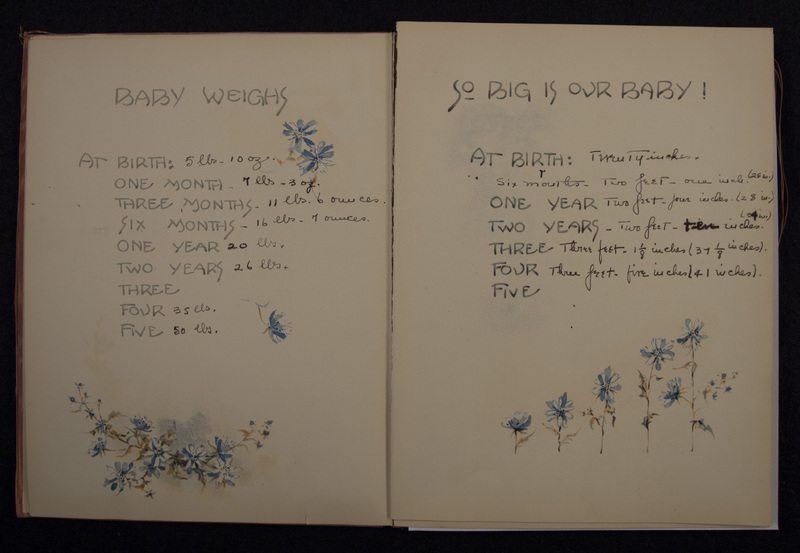 BABY WEIGHS
AT BIRTH: 5 lbs - 10 oz.
ONE MONTH - 7 lbs - 3 oz.
THREE MONTHS - 11 lbs. 6 ounces.
SIX MONTHS - 16 lbs - 7 ounces.
ONE YEAR 20 lbs.
TWO YEARS 26 lbs.
THREE
FOUR 35 lbs.
FIVE 50 lbs.
SO BIG IS OUR BABY!
AT BIRTH: Twenty inches.
Six months - Two feet - one inch. (25 in.)
ONE YEAR Two feet - four inches. (28 in.)
TWO YEARS - Two feet - ten inches. (34 in.)
THREE Three feet - 1 1/2 inches (37 1/2 inches).
FOUR Three feet - five inches (41 inches).
FIVE